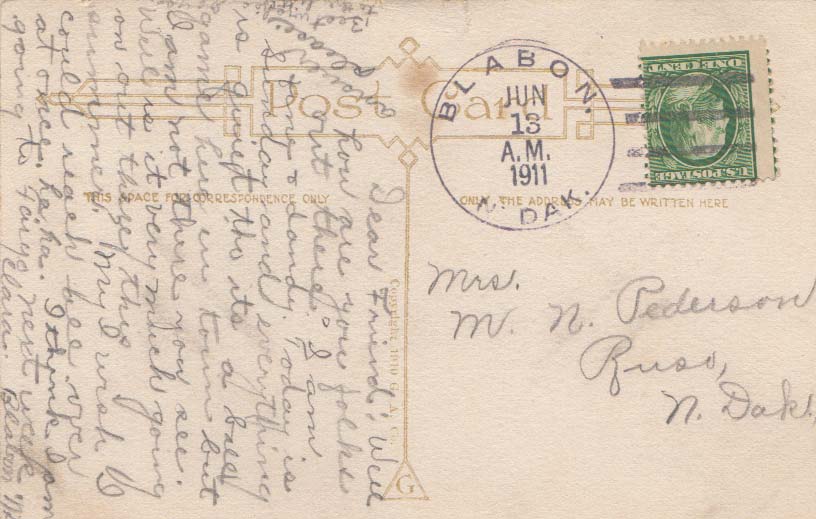 Post Card
THIS SPACE FOR CORRESPONDENCE ONLY
ONLY THE ADDRESS MAY BE WRITTEN HERE
BLABON.
JUN
13
A.M.
1911
N. DAK.
U.S. POSTAGE
ONE CENT
Mrs.
M. N. Pederson
Ruso,
N. Dak.
Dear Friend: Well
how are you folks
out there. I am
fine & dandy. Today is
Sunday and everything
is quiet tho its a ball
game here in town but
I am not there you see.
Well is it very much going
on out there this
summer. My I wish I
could reach bee over
at once. ha. ha. I think I am
going to next week
Clara. Blabon
please
Copyright 1910 G. A. Co.
G